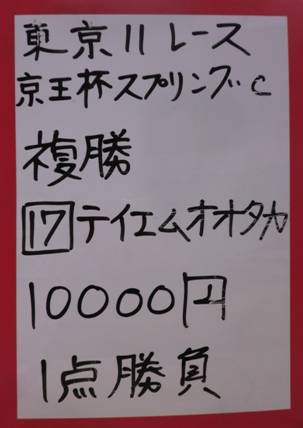 東京11レース
京王杯スプリングC
複勝
17テイエムオオタカ
10000円
1点勝負